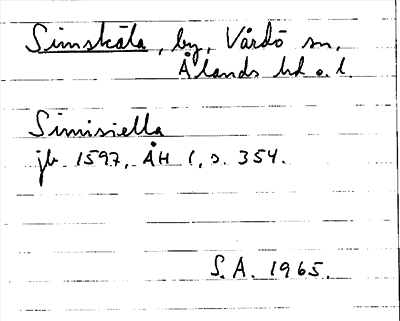 Simskåla, by, Vårdö sn,
Ålands hd o. l.
Simisiella
jb 1597, ÅH 1, s. 354.
S.A. 1965.